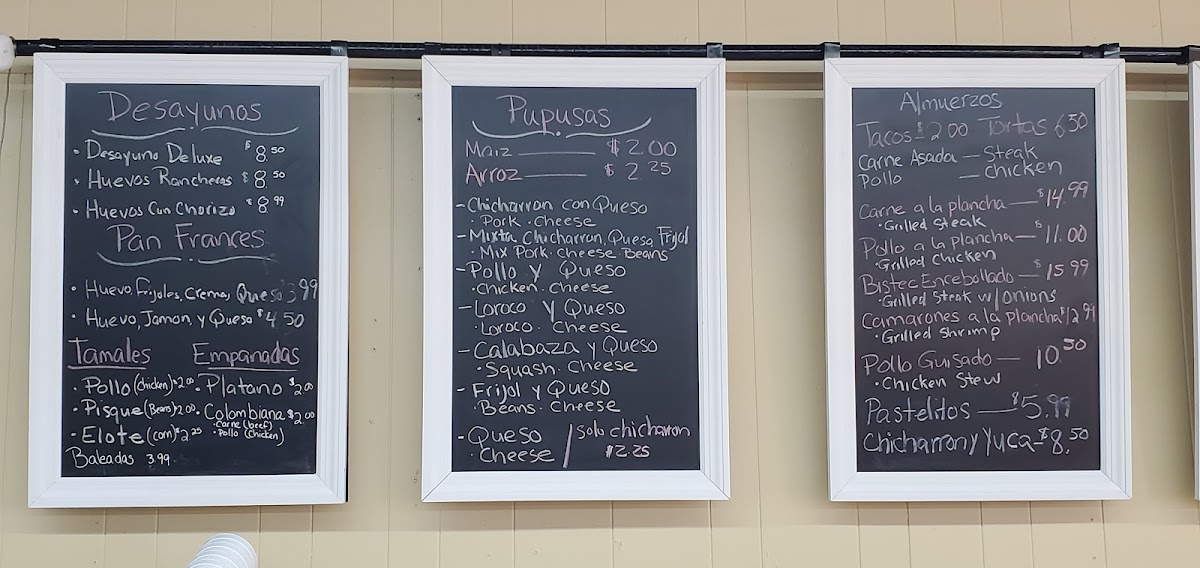 Desayunos
• Desayuno Deluxe $8.50
• Huevos Rancheros $8.50
• Huevos Con Chorizo $8.99
Pan Frances
• Huevo, Frijoles, Crema, Queso 3.99
• Huevo, Jamon, y Queso $4.50
Tamales
• Pollo (chicken) $2.00
• Pisque (Beans) 2.00
• Elote (corn) $2.25
Baleadas 3.99
Empanadas
• Platano $2.00
• Colombiana $2.00
• Carne (beef)
• Pollo (chicken)
Pupusas
Maiz $2.00
Arroz $2.25
- Chicharron con Queso
• Pork • Cheese
- Mixta Chicharron, Queso, Frijol
• Mix Pork • Cheese Beans
- Pollo y Queso
• Chicken • Cheese
- Loroco y Queso
• Loroco • Cheese
- Calabaza y Queso
• Squash • Cheese
- Frijol y Queso
• Beans • Cheese
- Queso
• Cheese
/ Solo chicharron
$2.25
Almuerzos
Tacos $2.00 Tortas 6.50
Carne Asada — Steak
Pollo — Chicken
Carne a la plancha — $14.99
• Grilled Steak
Pollo a la plancha — $11.00
• Grilled Chicken
Bistec Encebollado — $15.99
• Grilled Steak w/onions
Camarones a la plancha $12.99
• Grilled Shrimp
Pollo Guisado — 10.50
• Chicken Stew
Pastelitos — $5.99
Chicharron y Yuca - $8.50